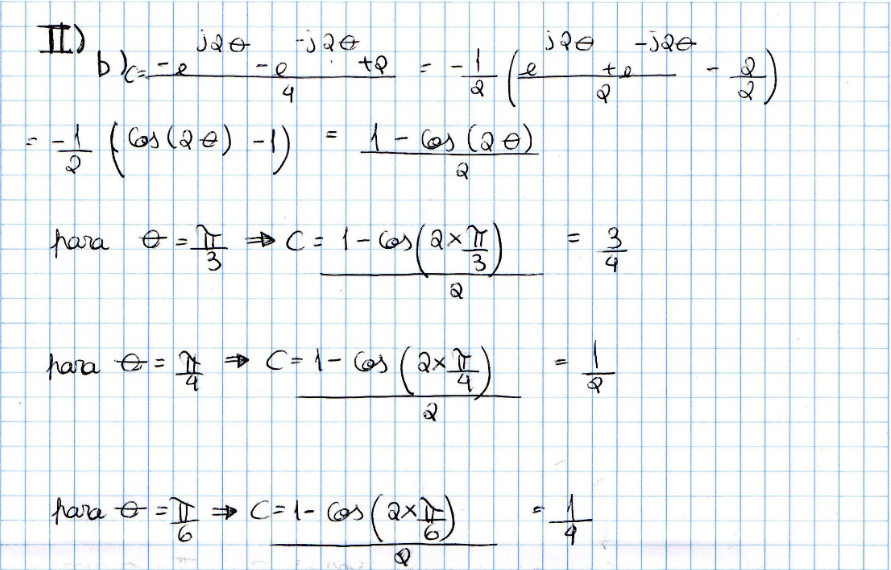 II)
b) C = (-e^{j2θ} - e^{-j2θ} + 2)/4 = -1/2 ( (e^{j2θ} + e^{-j2θ})/2 - 2/2 )
= -1/2 (Cos(2θ) - 1) = (1 - Cos(2θ))/2
para θ = π/3 ⇒ C = (1 - Cos(2×π/3))/2 = 3/4
para θ = π/4 ⇒ C = (1 - Cos(2×π/4))/2 = 1/2
para θ = π/6 ⇒ C = (1 - Cos(2×π/6))/2 = 1/4